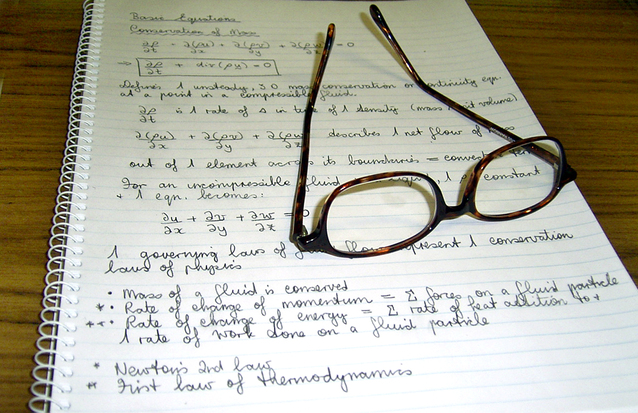 Basic Equations
Conservation of Mass
∂ρ/∂t + ∂(ρu)/∂x + ∂(ρv)/∂y + ∂(ρw)/∂z = 0
⇒ ∂ρ/∂t + div(ρu) = 0
Defines 1 unsteady, 3D mass conservation or continuity eqn.
at a point in a compressible fluid.
∂ρ/∂t is 1 rate of Δ in time of 1 density (mass/unit volume)
∂(ρu)/∂x + ∂(ρv)/∂y + ∂(ρw)/∂z describes 1 net flow of mass
out of 1 element across its boundaries =
For an incompressible fluid 1 constant
+ 1 eqn. becomes:
∂u/∂x + ∂v/∂y + ∂w/∂z = 0
1 governing laws of fluid flow represent 1 conservation
laws of physics
• Mass of a fluid is conserved
* • Rate of change of momentum = Σ forces on a fluid particle
** • Rate of change of energy = Σ rate of heat addition to +
1 rate of work done on a fluid particle
* Newton's 2nd law
** First law of thermodynamics